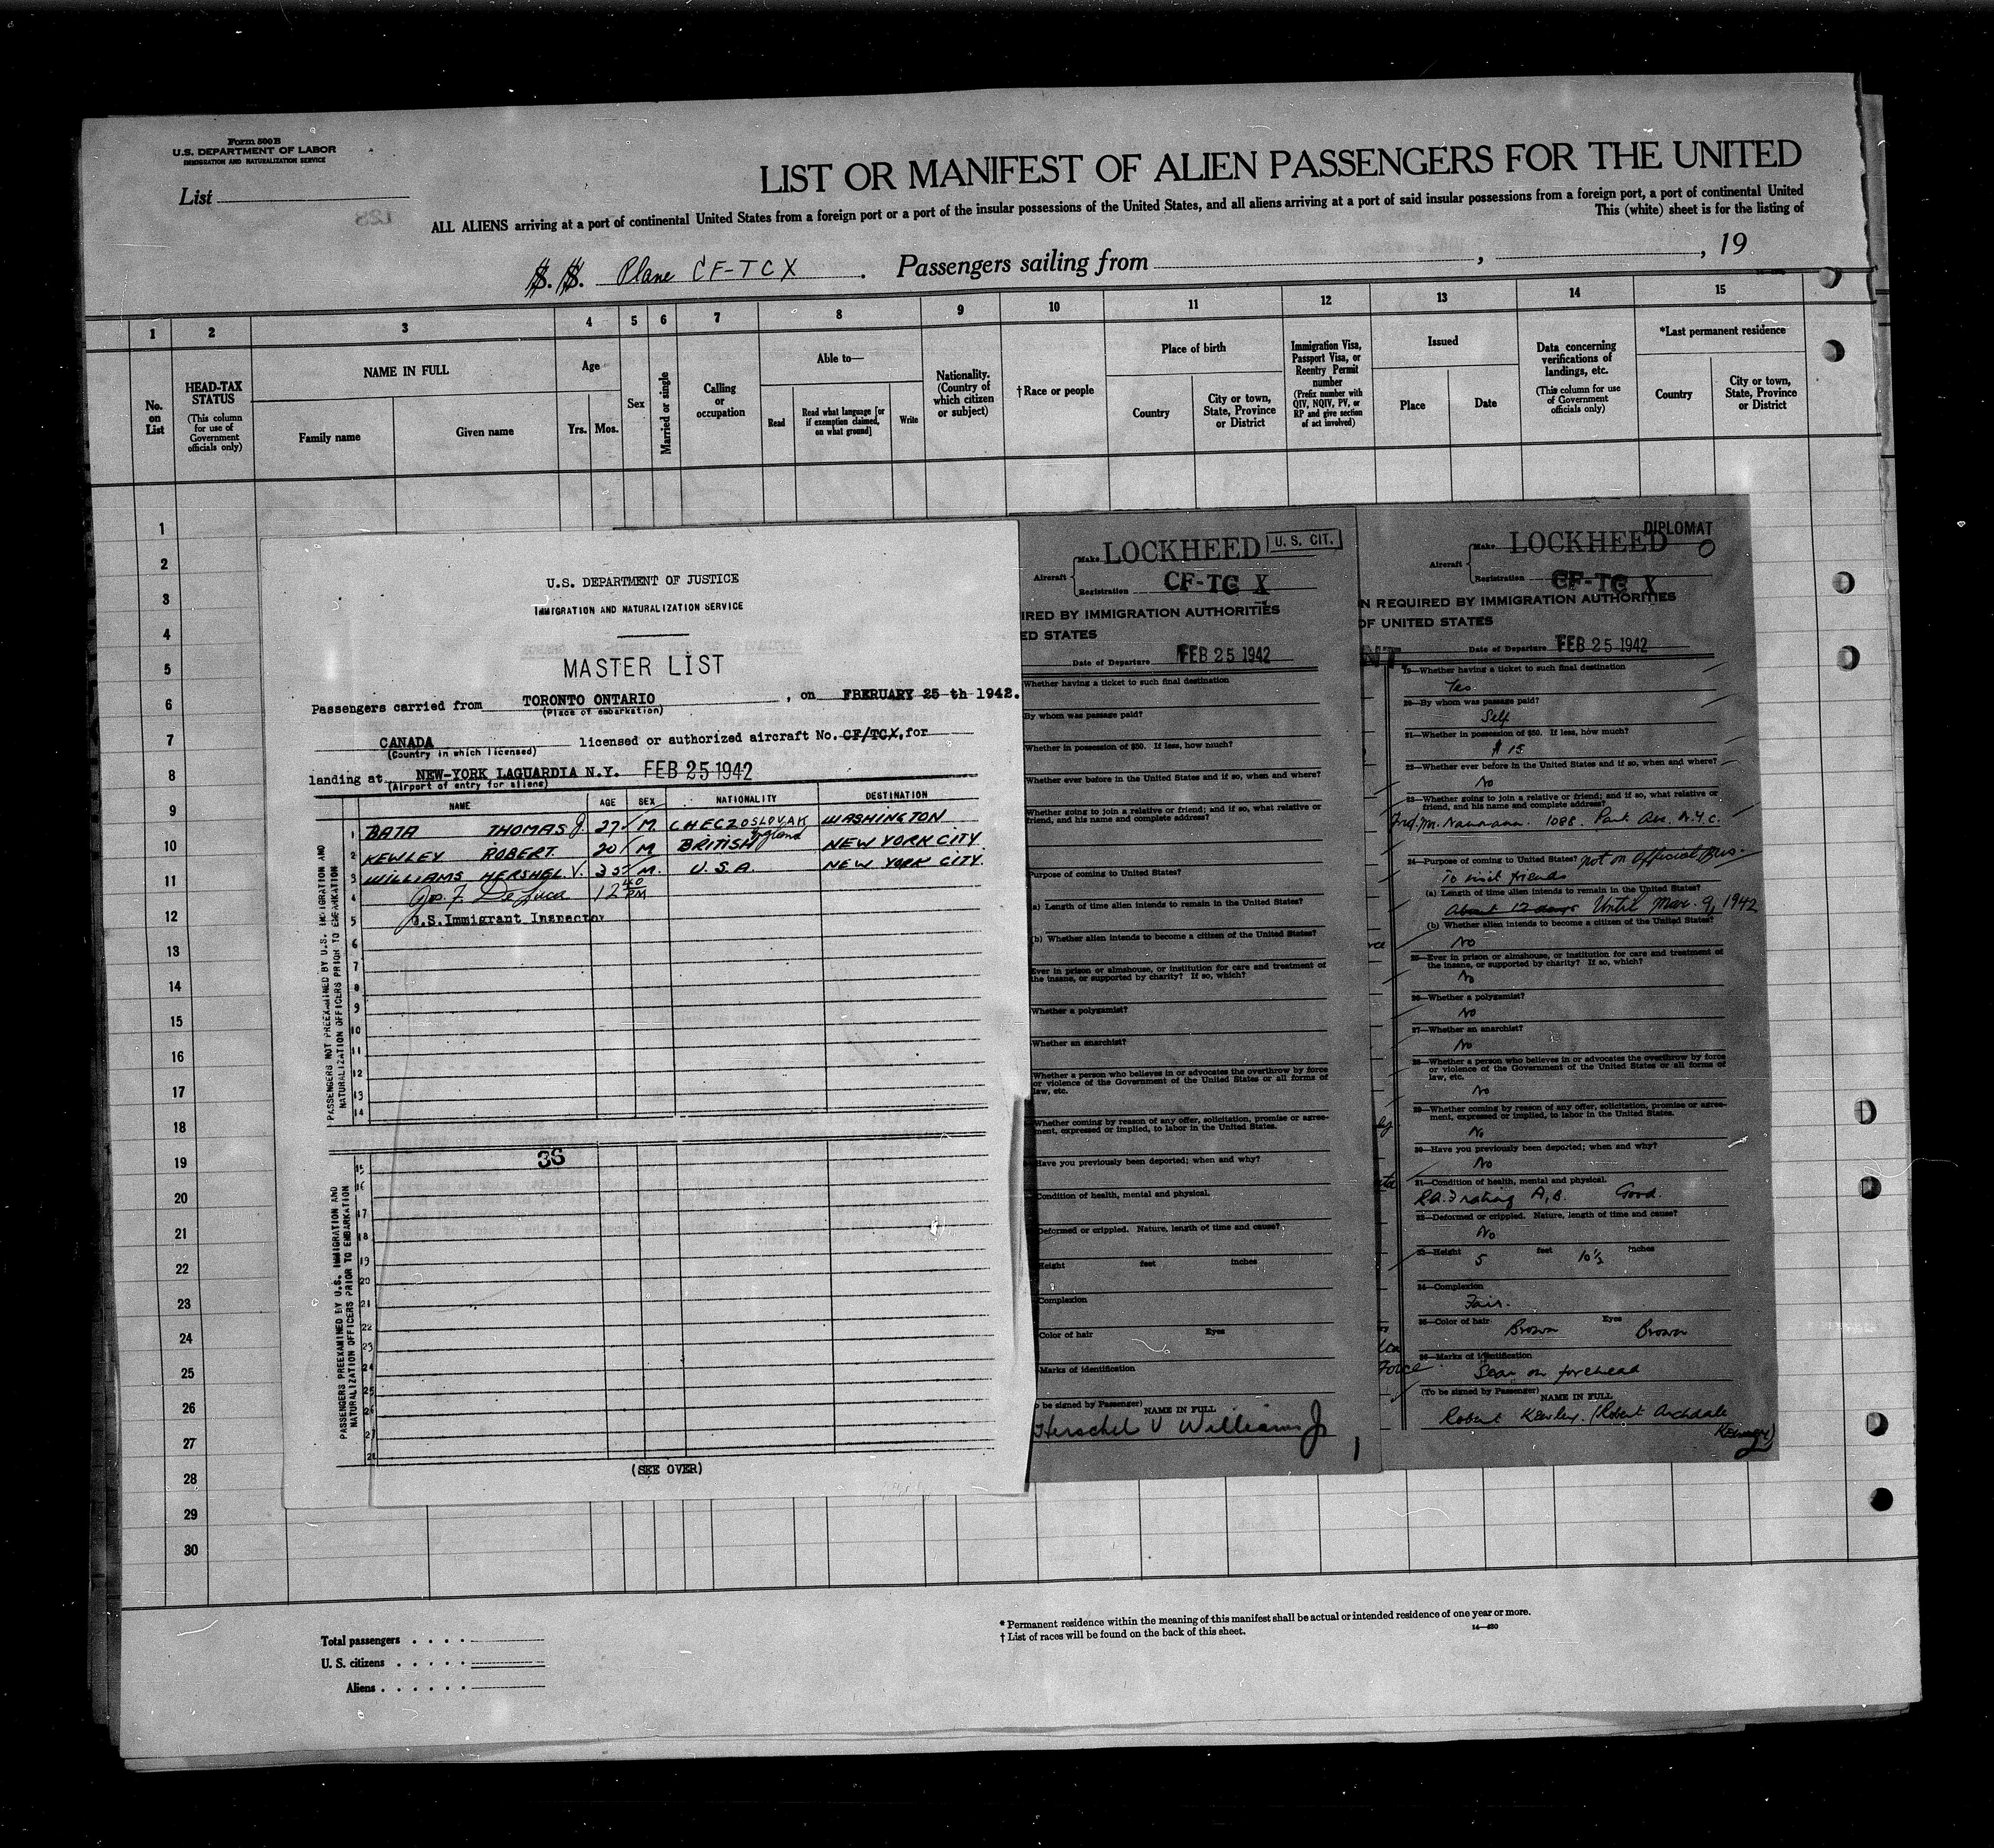 Form 500 B
U.S. DEPARTMENT OF LABOR
IMMIGRATION AND NATURALIZATION SERVICE
List
128
LIST OR MANIFEST OF ALIEN PASSENGERS FOR THE UNITED
ALL ALIENS arriving at a port of continental United States from a foreign port or a port of the insular possessions of the United States, and all aliens arriving at a port of said insular possessions from a foreign port, a port of continental United
This (white) sheet is for the listing of
S.S. Plane CF-TCX . Passengers sailing from , , 19
1 2 3 4 5 6 7 8 9 10 11 12 13 14 15
No. on List
HEAD-TAX STATUS
(This column for use of Government officials only)
NAME IN FULL
Family name
Given name
Age
Yrs. Mos.
Sex
Married or single
Calling or occupation
Able to—
Read
Read what language [or if exemption claimed, on what ground]
Write
Nationality. (Country of which citizen or subject)
†Race or people
Place of birth
Country
City or town, State, Province or District
Immigration Visa, Passport Visa, or Reentry Permit number
(Prefix number with QIV, NQIV, PV, or RP and give section of act involved)
Issued
Place
Date
Data concerning verifications of landings, etc.
(This column for use of Government officials only)
*Last permanent residence
Country
City or town, State, Province or District
1
2
3
4
5
6
7
8
9
10
11
12
13
14
15
16
17
18
19
20
21
22
23
24
25
26
27
28
29
30
U.S. DEPARTMENT OF JUSTICE
IMMIGRATION AND NATURALIZATION SERVICE
MASTER LIST
Passengers carried from TORONTO ONTARIO , on FBERUARY 25 th 1942.
(Place of embarkation)
CANADA licensed or authorized aircraft No. CF/TCX, for
(Country in which licensed)
landing at NEW-YORK LAGUARDIA N.Y. FEB 25 1942
(Airport of entry for aliens)
NAME AGE SEX NATIONALITY DESTINATION
PASSENGERS NOT PREEXAMINED BY U.S. IMMIGRATION AND
NATURALIZATION OFFICERS PRIOR TO EMBARKATION
1 BATA THOMAS J. 27 M CHECZOSLOVAK WASHINGTON
2 KEWLEY ROBERT 20 M BRITISH England NEW YORK CITY.
3 WILLIAMS HERSHEL V. 35 M. U.S.A. NEW YORK CITY.
4 Jos. F. De Luca 12 40 PM
5 U.S.Immigrant Inspector
6
7
8
9
10
11
12
13
14
PASSENGERS PREEXAMINED BY U.S. IMMIGRATION AND
NATURALIZATION OFFICERS PRIOR TO EMBARKATION
15 36
16
17
18
19
20
21
22
23
24
25
26
27
28
(SEE OVER)
Aircraft
Make LOCKHEED U. S. CIT.
Registration CF-TC X
IRED BY IMMIGRATION AUTHORITIES
ED STATES
Date of Departure FEB 25 1942
Whether having a ticket to such final destination
By whom was passage paid?
Whether in possession of $50. If less, how much?
Whether ever before in the United States and if so, when and where?
Whether going to join a relative or friend; and if so, what relative or
friend, and his name and complete address?
Purpose of coming to United States?
a) Length of time alien intends to remain in the United States?
(b) Whether alien intends to become a citizen of the United States?
Ever in prison or almshouse, or institution for care and treatment of
the insane, or supported by charity? If so, which?
Whether a polygamist?
Whether an anarchist?
Whether a person who believes in or advocates the overthrow by force
or violence of the Government of the United States or all forms of
law, etc.
Whether coming by reason of any offer, solicitation, promise or agree-
ment, expressed or implied, to labor in the United States.
Have you previously been deported; when and why?
Condition of health, mental and physical.
Deformed or crippled. Nature, length of time and cause?
Height feet inches
Complexion
Color of hair Eyes
Marks of identification
o be signed by Passenger)
NAME IN FULL
Herschel V Williams Jr
DIPLOMAT
Aircraft
Make LOCKHEED
Registration CF-TC X
N REQUIRED BY IMMIGRATION AUTHORITIES
OF UNITED STATES
Date of Departure FEB 25 1942
NT
19—Whether having a ticket to such final destination
Yes
20—By whom was passage paid?
Self
21—Whether in possession of $50. If less, how much?
$ 15
22—Whether ever before in the United States and if so, when and where?
No
23—Whether going to join a relative or friend; and if so, what relative or
friend, and his name and complete address?
Frd. Mr. Naumann. 1088. Park Ave. N.Y.C.
24—Purpose of coming to United States? Not on Official Bus.
To visit friends
(a) Length of time alien intends to remain in the United States?
About 12 days Until Mar. 9, 1942
(b) Whether alien intends to become a citizen of the United States?
No
25—Ever in prison or almshouse, or institution for care and treatment of
the insane, or supported by charity? If so, which?
No
26—Whether a polygamist?
No
27—Whether an anarchist?
No
28—Whether a person who believes in or advocates the overthrow by force
or violence of the Government of the United States or all forms of
law, etc.
No
29—Whether coming by reason of any offer, solicitation, promise or agree-
ment, expressed or implied, to labor in the United States.
No
30—Have you previously been deported; when and why?
No
31—Condition of health, mental and physical.
A, B. Good.
32—Deformed or crippled. Nature, length of time and cause?
No
33—Height 5 feet 10½ inches
34—Complexion
Fair.
35—Color of hair Brown Eyes Brown
36—Marks of identification
Force
Scar on forehead
(To be signed by Passenger)
NAME IN FULL
Robert Kewley. (Robert Archdale
Kewley)
Total passengers . . . .
U. S. citizens . . . . .
Aliens . . . . . .
* Permanent residence within the meaning of this manifest shall be actual or intended residence of one year or more.
† List of races will be found on the back of this sheet.
14—630